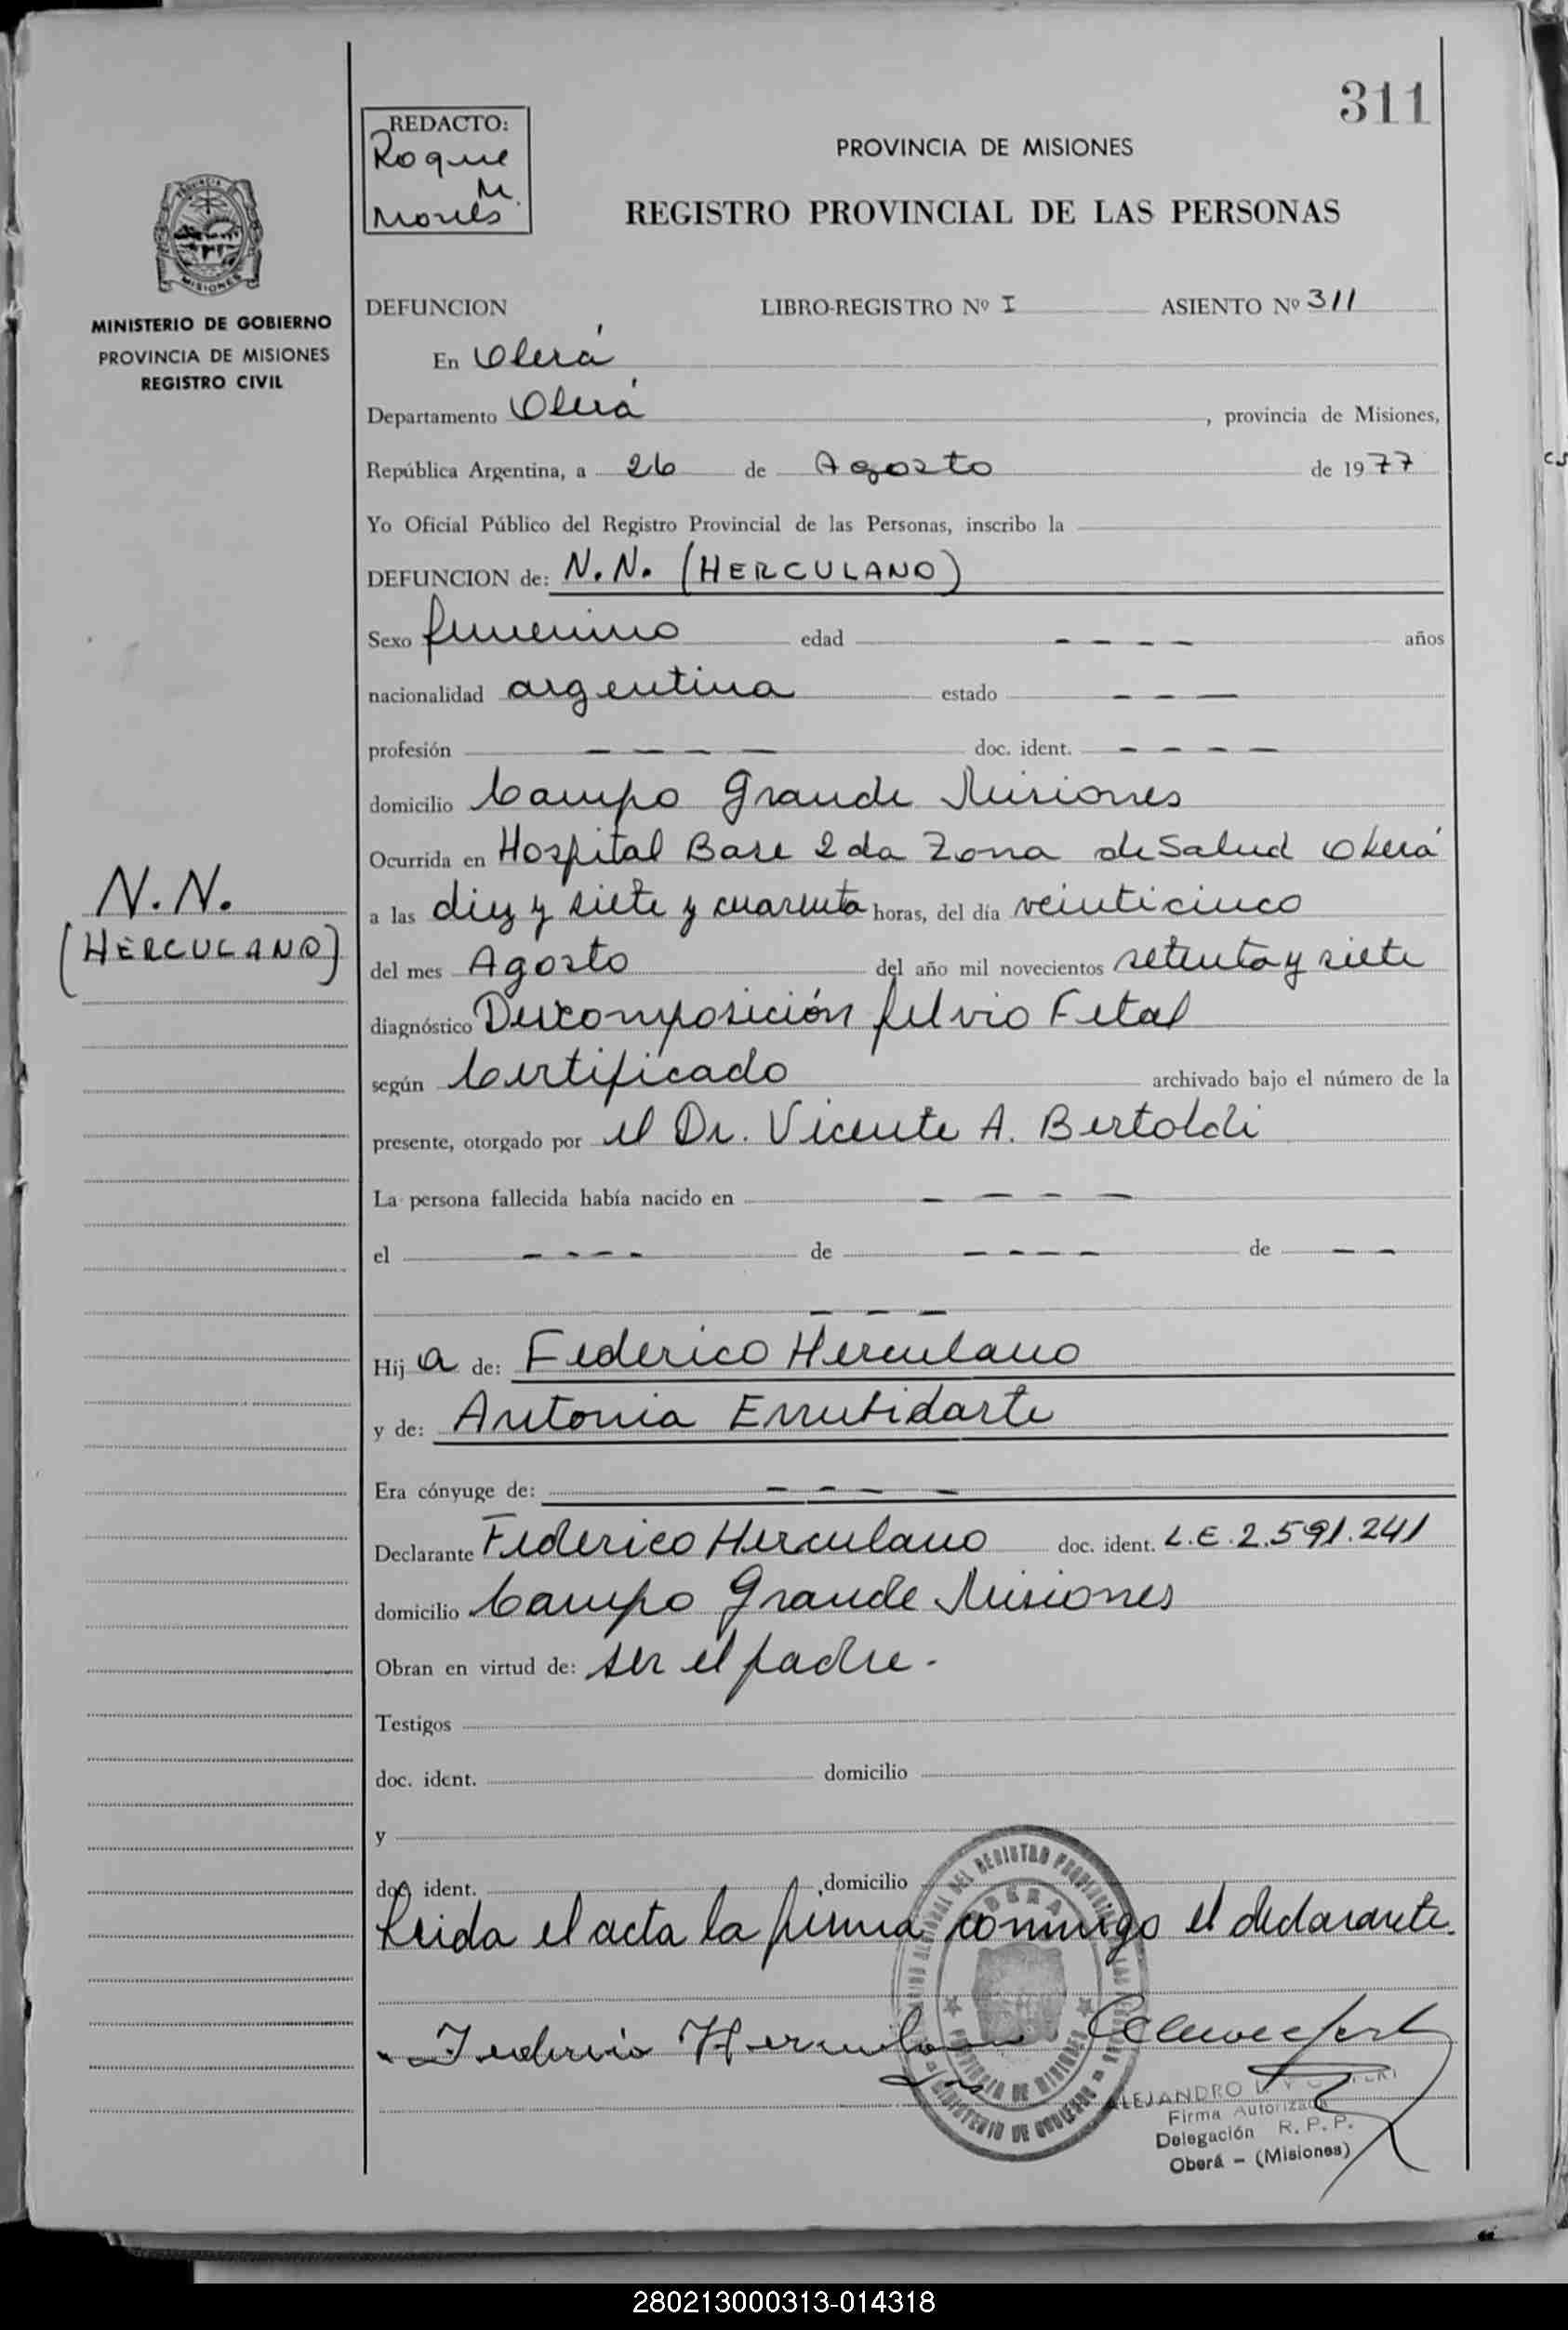 311
REDACTO:
Roque
M.
PROVINCIA DE MISIONES
REGISTRO PROVINCIAL DE LAS PERSONAS
MISIONES
MINISTERIO DE GOBIERNO
PROVINCIA DE MISIONES
REGISTRO CIVIL
DEFUNCION LIBRO-REGISTRO Nº I ASIENTO Nº 311
En Oberá
Departamento Oberá, provincia de Misiones,
República Argentina, a 26 de Agosto de 1977
Yo Oficial Público del Registro Provincial de las Personas, inscribo la
DEFUNCION de: N.N. (HERCULANO)
Sexo femenino edad - - - - años
nacionalidad argentina estado - - -
profesión - - - - doc. ident. - - - -
domicilio Campo Grande Misiones
Ocurrida en Hospital Base 2da Zona de Salud Oberá
N.N.
(HERCULANO)
a las diez y siete y cuarenta horas, del día veinticinco
del mes Agosto del año mil novecientos setenta y siete
diagnóstico Descomposición pelvio Fetal
según Certificado archivado bajo el número de la
presente, otorgado por el Dr. Vicente A. Bertoldi
La persona fallecida había nacido en - - - -
el - - - - de - - - - de - -
- - -
Hij a de: Federico Herculano
y de: Antonia
Era cónyuge de: - - - -
Declarante Federico Herculano doc. ident. L.E. 2.591.241
domicilio Campo Grande Misiones
Obran en virtud de: ser el padre.
Testigos
doc. ident. domicilio
y
doc. ident. , domicilio
Leida el acta la firma conmigo el declarante.
Federico Herculano
ALEJANDRO
Firma Autorizada
Delegación R. P. P.
Oberá - (Misiones)
280213000313-014318